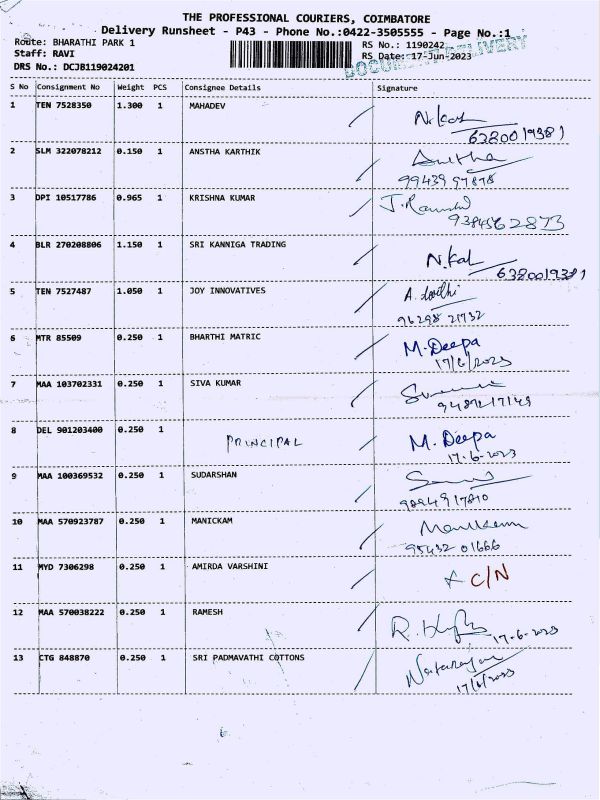 THE PROFESSIONAL COURIERS, COIMBATORE
Delivery Runsheet - P43 - Phone No.:0422-3505555 - Page No.:1
Route: BHARATHI PARK 1 RS No.: 1190242
Staff: RAVI RS Date: 17-Jun-2023
DOCUMENT DELIVERY
DRS No.: DCJB119024201
S No Consignment No Weight PCS Consignee Details Signature
1 TEN 7528350 1.300 1 MAHADEV
6380019381
2 SLM 322078212 0.150 1 ANSTHA KARTHIK Anitha
99439 97878
3 DPI 10517786 0.965 1 KRISHNA KUMAR
9384562873
4 BLR 270208806 1.150 1 SRI KANNIGA TRADING
6380019381
5 TEN 7527487 1.050 1 JOY INNOVATIVES
96298 21732
6 MTR 85509 0.250 1 BHARTHI MATRIC M.Deepa
17/6/2023
7 MAA 103702331 0.250 1 SIVA KUMAR
8 DEL 901203400 0.250 1 PRINCIPAL M.Deepa
17-6-2023
9 MAA 100369532 0.250 1 SUDARSHAN
9894917810
10 MAA 570923787 0.250 1 MANICKAM
95432 01666
11 MYD 7306298 0.250 1 AMIRDA VARSHINI C/N
12 MAA 570038222 0.250 1 RAMESH
17-6-2023
13 CTG 848870 0.250 1 SRI PADMAVATHI COTTONS Natarajan
17/6/2023